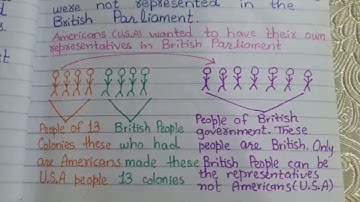 were not represented in the
British Parliament.
Americans (U.S.A) wanted to have their own
representatives in British Parliament
People of 13
Colonies these
are Americans
U.S.A people
British People
who had
made these
13 colonies
People of British
government. These
people are British. Only
British People can be
the representatives
not Americans (U.S.A)